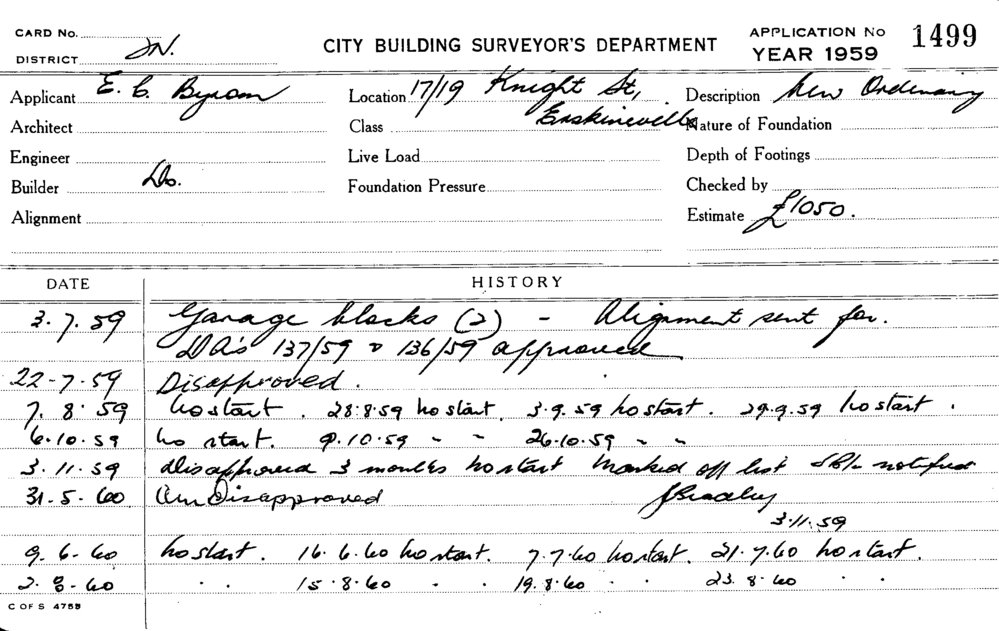 CARD No.
DISTRICT JN.
CITY BUILDING SURVEYOR'S DEPARTMENT
APPLICATION No 1499
YEAR 1959
Applicant E. C. Byrom
Location 17/19 Knight St,
Erskineville
Description New Ordinary
Architect
Class
Nature of Foundation
Engineer
Live Load
Depth of Footings
Builder Do.
Foundation Pressure
Checked by
Alignment
Estimate £1050.
DATE HISTORY
3.7.59 Garage blocks (2) - Alignment sent for.
DA's 137/59 & 136/59 approved
22-7-59 Disapproved.
7.8.59 No start. 28.8.59 No start. 3.9.59 No start. 29.9.59 No start.
6.10.59 No start. 9.10.59 " " 26.10.59 " "
3.11.59 Disapproved 3 months no start Marked off list notified
31.5.60 Disapproved
3.11.59
9.6.60 No start. 16.6.60 No start. 7.7.60 No start. 21.7.60 No start.
2.8.60 . . 15.8.60 . . 19.8.60 . . 23.8.60 . .
C OF S 4755